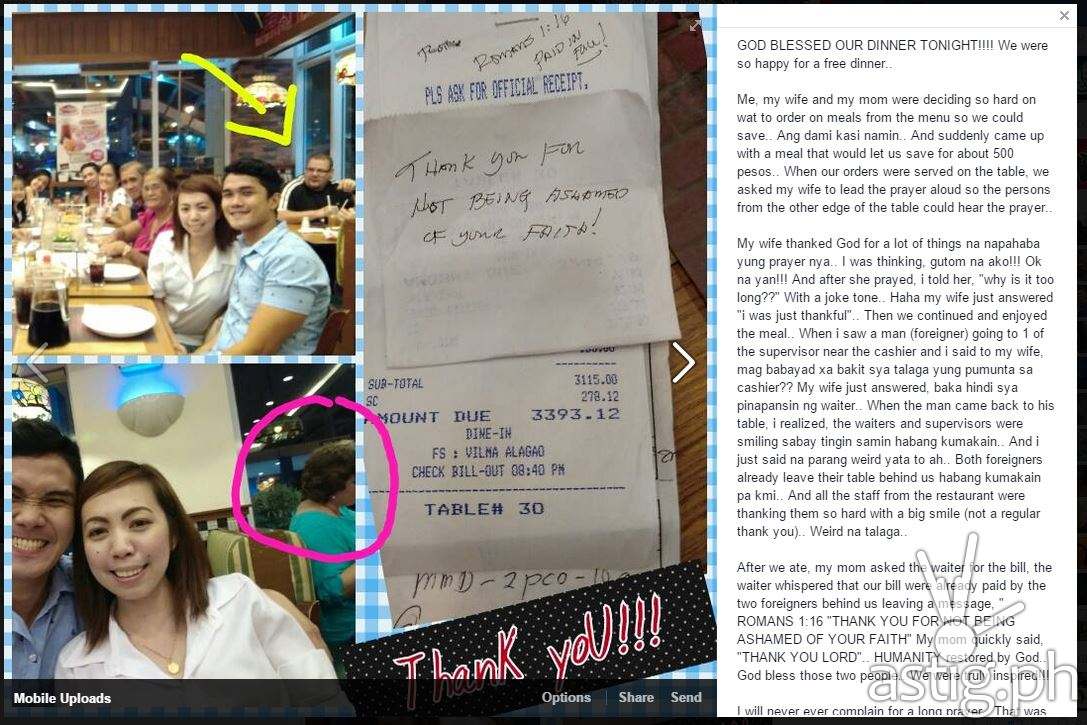 Romans 1:16
PAID IN
FULL!
PLS ASK FOR OFFICIAL RECEIPT.
THANK you FOR
NOT BEING ASHAMED
OF your FAITH!
SUB-TOTAL 3115.00
SC 278.12
AMOUNT DUE 3393.12
DINE-IN
FS : VILMA ALAGAO
CHECK BILL-OUT 08:40 PM
TABLE# 30
MMD - 2 pco -
Thank yoU!!!
Mobile Uploads
Options Share Send
GOD BLESSED OUR DINNER TONIGHT!!!! We were
so happy for a free dinner..
Me, my wife and my mom were deciding so hard on
wat to order on meals from the menu so we could
save.. Ang dami kasi namin.. And suddenly came up
with a meal that would let us save for about 500
pesos.. When our orders were served on the table, we
asked my wife to lead the prayer aloud so the persons
from the other edge of the table could hear the prayer..
My wife thanked God for a lot of things na napahaba
yung prayer nya.. I was thinking, gutom na ako!!! Ok
na yan!!! And after she prayed, i told her, "why is it too
long??" With a joke tone.. Haha my wife just answered
"i was just thankful".. Then we continued and enjoyed
the meal.. When i saw a man (foreigner) going to 1 of
the supervisor near the cashier and i said to my wife,
mag babayad xa bakit sya talaga yung pumunta sa
cashier?? My wife just answered, baka hindi sya
pinapansin ng waiter.. When the man came back to his
table, i realized, the waiters and supervisors were
smiling sabay tingin samin habang kumakain.. And i
just said na parang weird yata to ah.. Both foreigners
already leave their table behind us habang kumakain
pa kmi.. And all the staff from the restaurant were
thanking them so hard with a big smile (not a regular
thank you).. Weird na talaga..
After we ate, my mom asked the waiter for the bill, the
waiter whispered that our bill were already paid by the
two foreigners behind us leaving a message, "
ROMANS 1:16 "THANK YOU FOR NOT BEING
ASHAMED OF YOUR FAITH" My mom quickly said,
"THANK YOU LORD".. HUMANITY restored by God..
God bless those two people.. We were truly inspired!!!
I will never ever complain for a long prayer.. That was
astig.ph